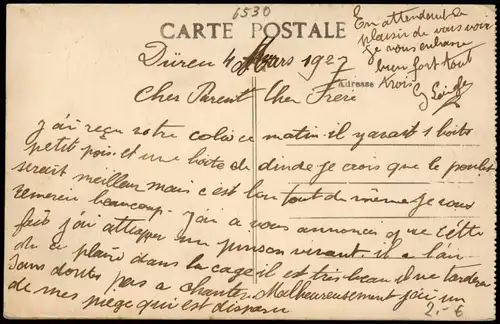 6530
CARTE POSTALE
En attendant le
plaisir de vous voir
je vous embrasse
bien fort tout
trois
Düren 4 Mars 1927
Adresse
Cher Parent Cher Frère
j'ai reçu votre colis ce matin il y avait 1 boite
petit pois et une boite de dinde je crois que le poulet
serait meilleur mais c'est bon tout de même je vous
remercie beaucoup. j'ai a vous annoncer que cette
fois j'ai attrapper un pinson vivant. il a l'air
de ce plaire dans la cage il est très beau il ne tardera
sans doutes pas a chanter. Malheureusement j'ai un
de mes piège qui est disparu
2.- €